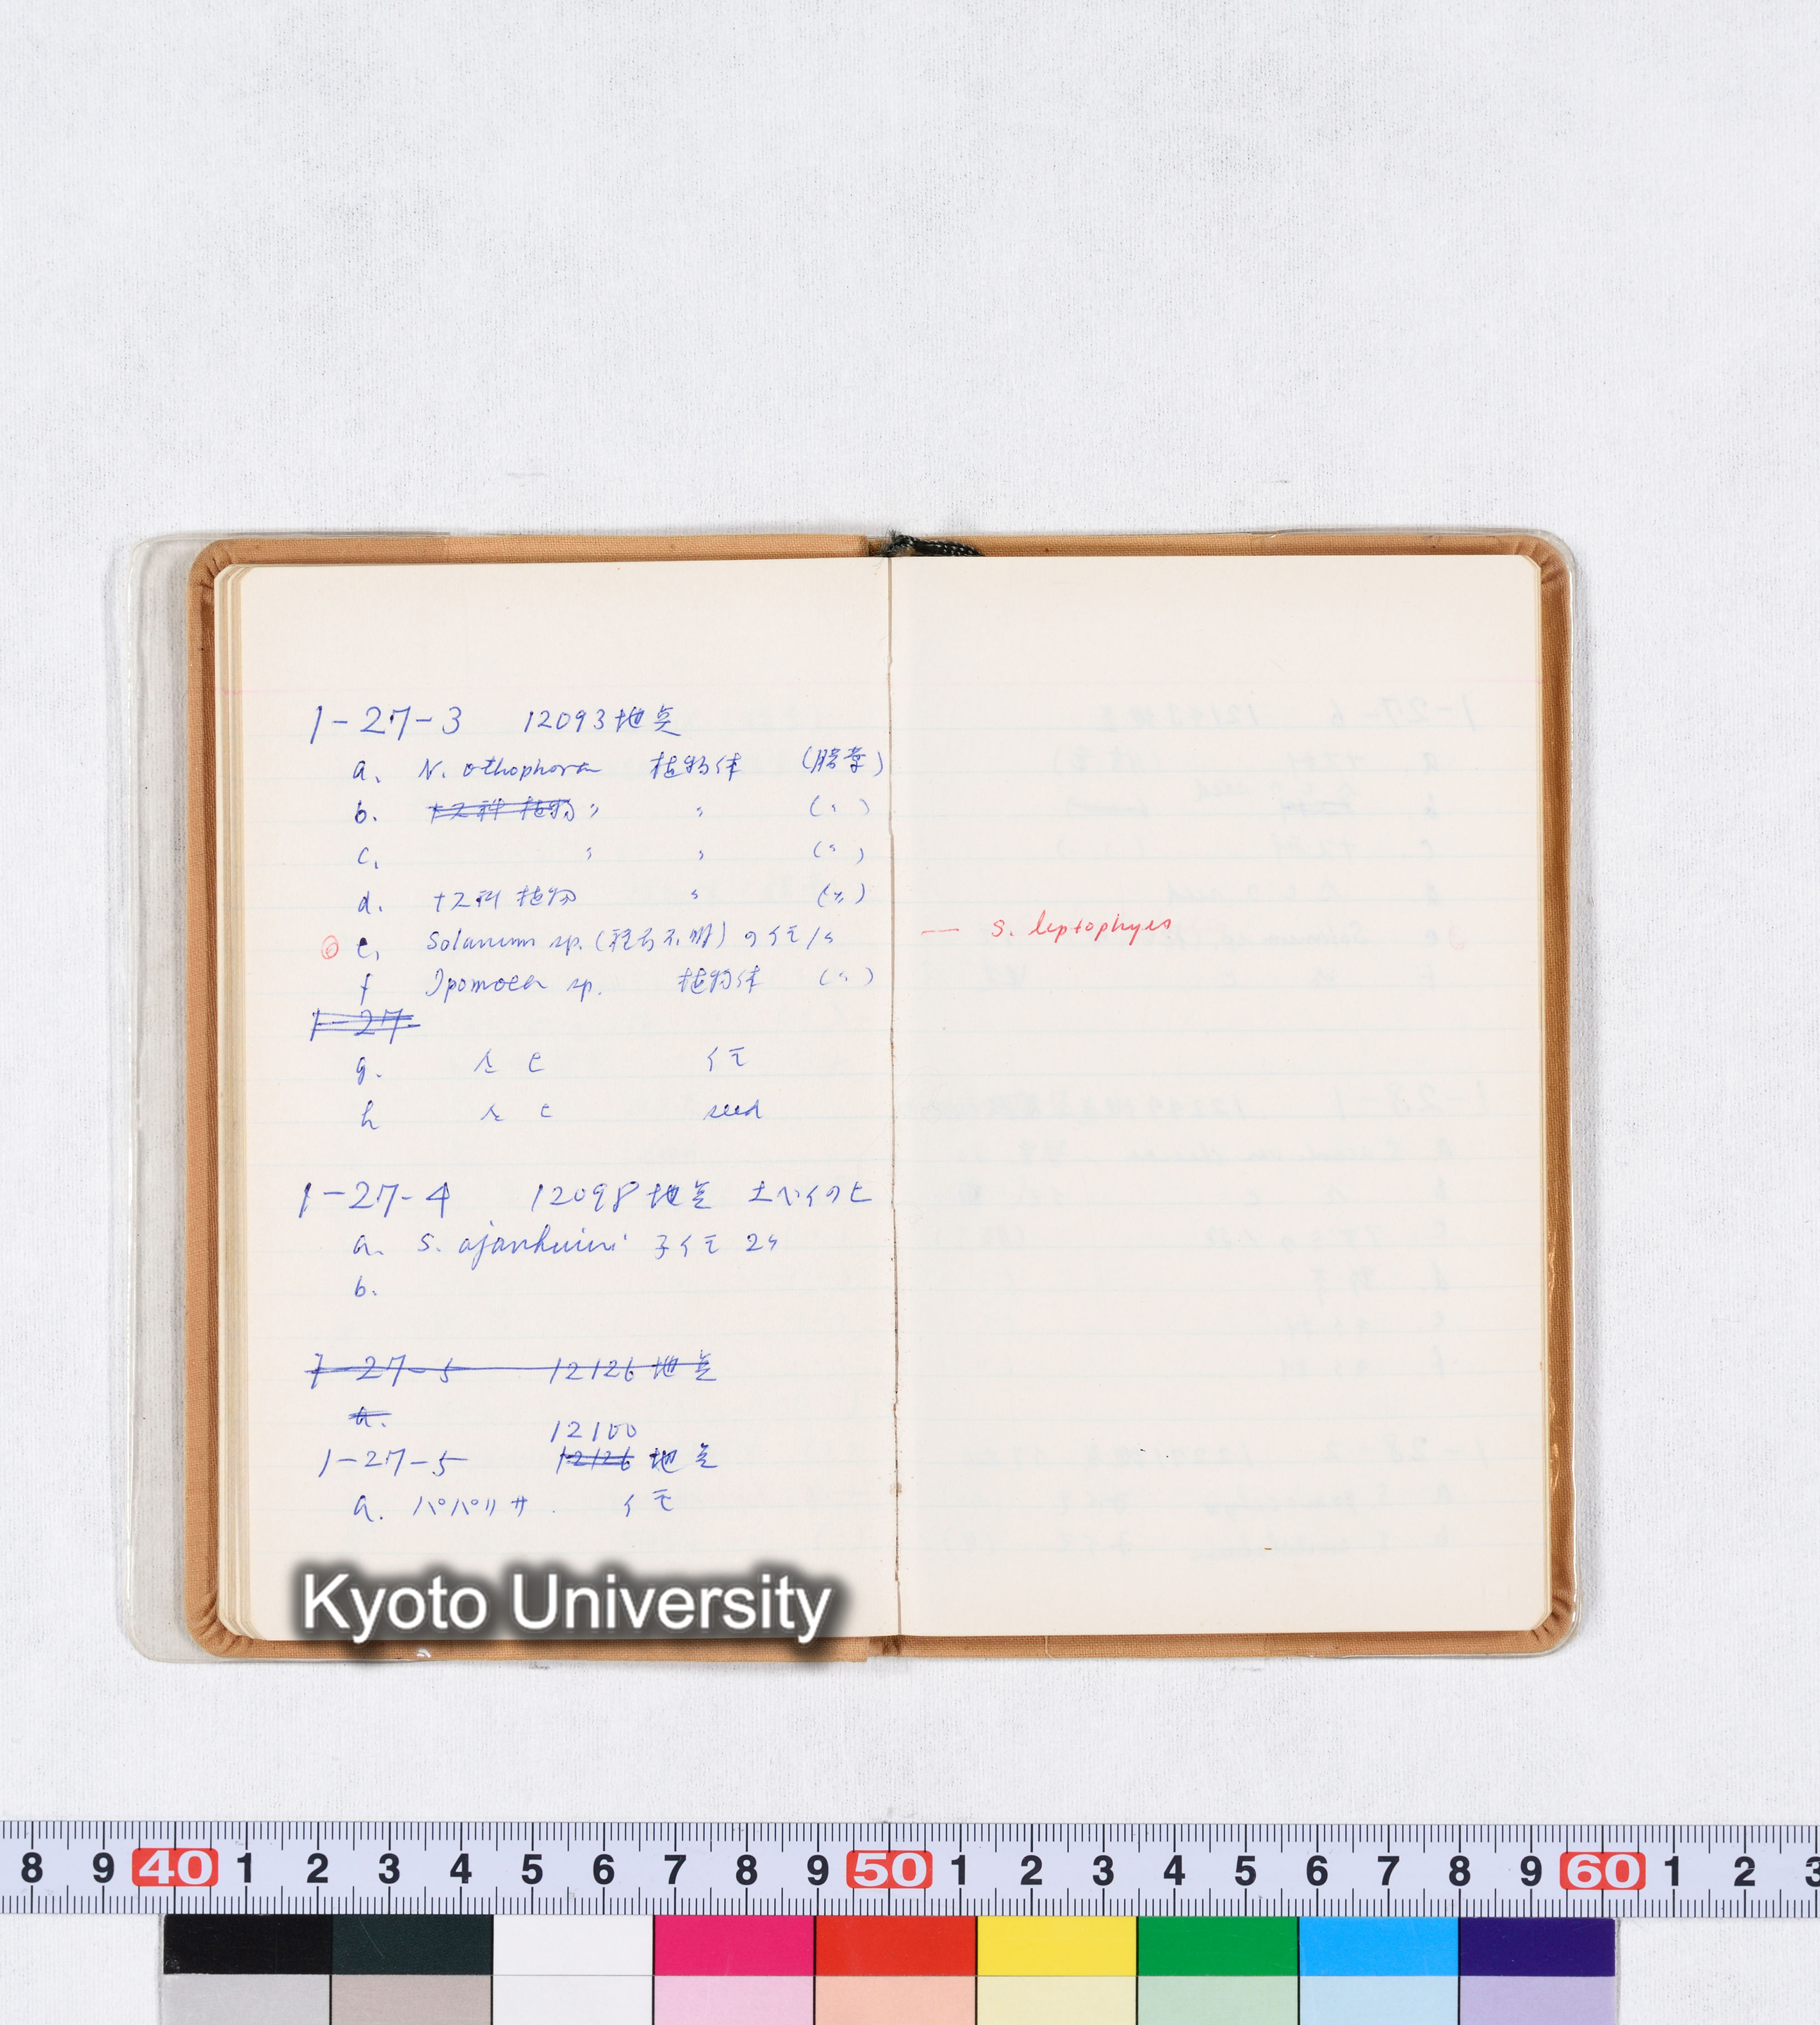 1-27-3 12093地点
a. N. othophora 植物体 (腊葉)
b. ナス科植物 〃 〃 (〃)
c. 〃 〃 (〃)
d. ナス科植物 〃 (〃)
◎ e. Solanum sp. (種名不明) のイモ 1ケ — S. leptophyes
f Ipomoea sp. 植物体 (〃)
1-27-
g. 仝上 イモ
h 仝上 seed
1-27-4 12098地点
a. S. ajanhuiri 子イモ 2ケ
b.
1-27-5 12126地点
a.
12100
1-27-5 12126地点
a. パパリサ イモ
Kyoto University
8 9 40 1 2 3 4 5 6 7 8 9 50 1 2 3 4 5 6 7 8 9 60 1 2 3